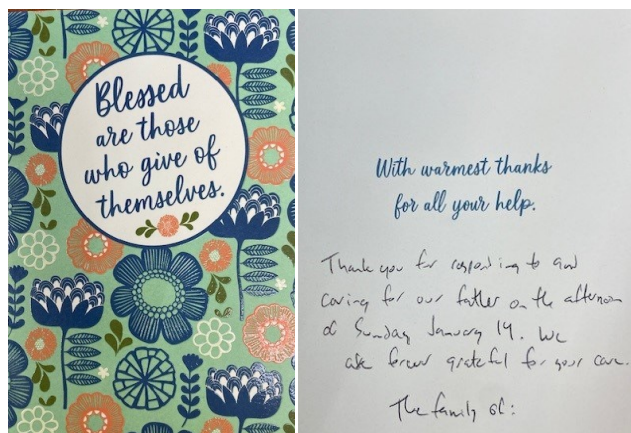 Blessed
are those
who give of
themselves.
With warmest thanks
for all your help.
Thank you for responding to and
caring for our father on the afternoon
of Sunday January 14. We
are forever grateful for your care.
The family of: